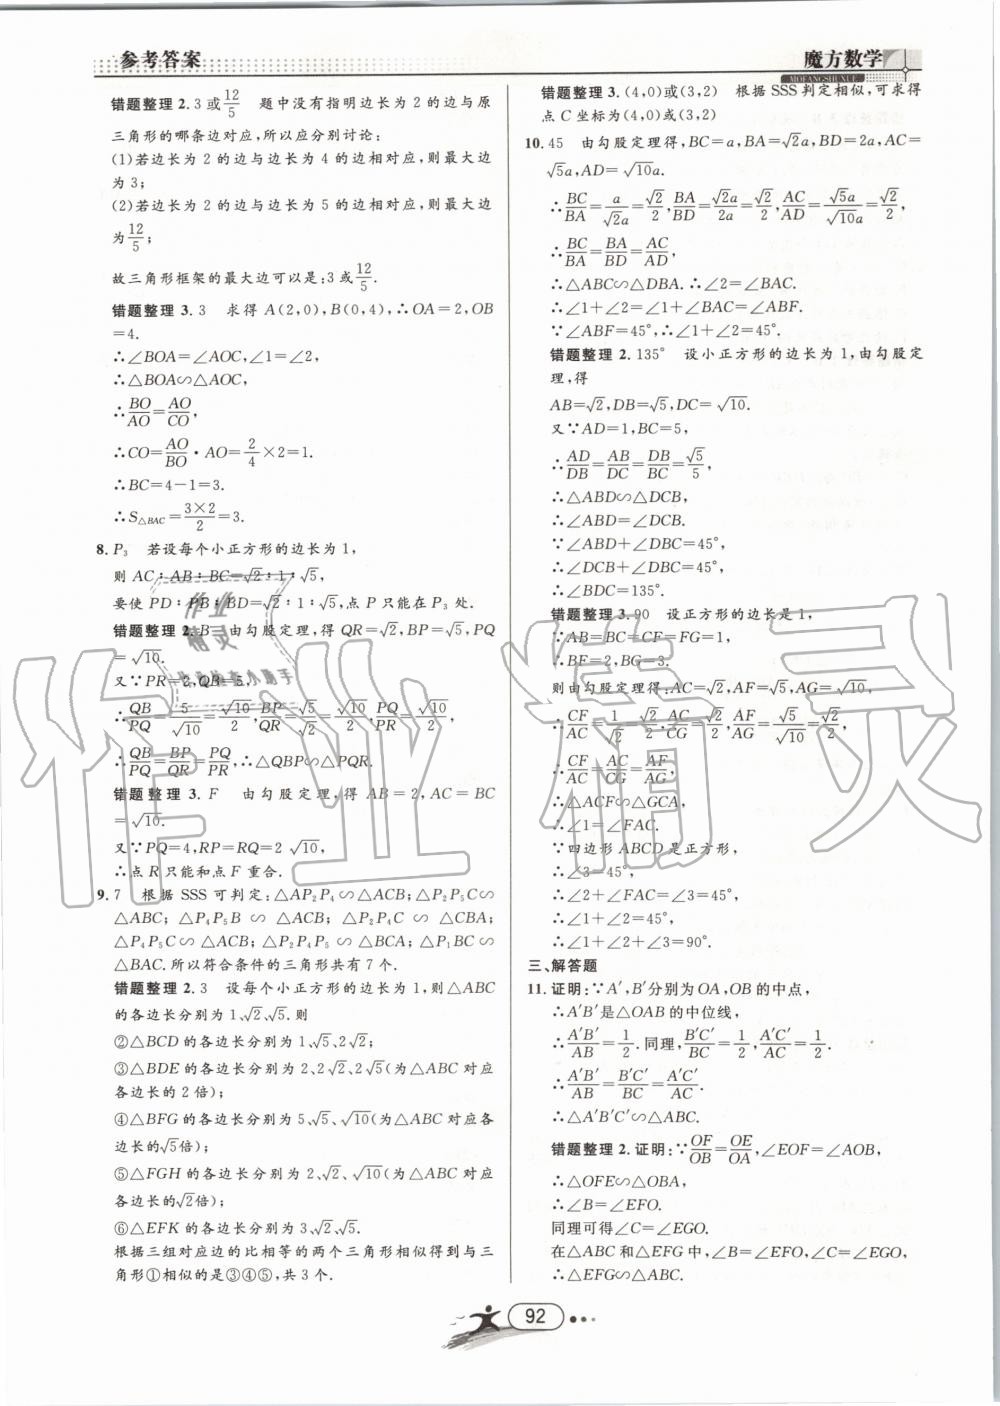 参考答案
魔方数学
MOFANGSHUXUE
错题整理 2. 3或12/5　题中没有指明边长为 2 的边与原
三角形的哪条边对应,所以应分别讨论:
(1)若边长为 2 的边与边长为 4 的边相对应,则最大边
为 3;
(2)若边长为 2 的边与边长为 5 的边相对应,则最大边
为12/5;
故三角形框架的最大边可以是:3或12/5.
错题整理 3. 3　求得 A(2,0),B(0,4),∴OA=2,OB
=4.
∴∠BOA=∠AOC,∠1=∠2,
∴△BOA∽△AOC,
∴BO/AO=AO/CO,
∴CO=AO/BO·AO=2/4×2=1.
∴BC=4-1=3.
∴S△BAC=3×2/2=3.
8. P₃　若设每个小正方形的边长为 1,
则 AC∶AB∶BC=√2∶1∶√5,
要使 PD∶PB∶BD=√2∶1∶√5,点 P 只能在 P₃ 处.
错题整理 2. B　由勾股定理,得 QR=√2,BP=√5,PQ
=√10.
又∵PR=2,QB=5,
∴QB/PQ=5/√10=√10/2,BP/QR=√5/√2=√10/2,PQ/PR=√10/2,
∴QB/PQ=BP/QR=PQ/PR,∴△QBP∽△PQR.
错题整理 3. F　由勾股定理,得 AB=2,AC=BC
=√10.
又∵PQ=4,RP=RQ=2√10.
∴点 R 只能和点 F 重合.
9. 7　根据 SSS 可判定:△AP₂P₄∽△ACB;△P₂P₅C∽
△ABC;△P₄P₅B∽△ACB;△P₂P₄C∽△CBA;
△P₄P₅C∽△ACB;△P₂P₄P₅∽△BCA;△P₁BC∽
△BAC.所以符合条件的三角形共有 7 个.
错题整理 2. 3　设每个小正方形的边长为 1,则△ABC
的各边长分别为 1、√2、√5.则
②△BCD的各边长分别为 1、√5、2√2;
③△BDE的各边长分别为 2、2√2、2√5(为△ABC 对应
各边长的 2 倍);
④△BFG的各边长分别为 5、√5、√10(为△ABC 对应各
边长的√5倍);
⑤△FGH的各边长分别为 2、√2、√10(为△ABC 对应
各边长的√2倍);
⑥△EFK 的各边长分别为 3、√2、√5.
根据三组对应边的比相等的两个三角形相似得到与三
角形①相似的是③④⑤,共 3 个.
错题整理 3. (4,0)或(3,2)　根据 SSS 判定相似,可求得
点 C 坐标为(4,0)或(3,2)
10. 45　由勾股定理得,BC=a,BA=√2a,BD=2a,AC=
√5a,AD=√10a.
∴BC/BA=a/√2a=√2/2,BA/BD=√2a/2a=√2/2,AC/AD=√5a/√10a=√2/2,
∴BC/BA=BA/BD=AC/AD,
∴△ABC∽△DBA.∴∠2=∠BAC.
∴∠1+∠2=∠1+∠BAC=∠ABF.
∵∠ABF=45°,∴∠1+∠2=45°.
错题整理 2. 135°　设小正方形的边长为 1,由勾股定
理,得
AB=√2,DB=√5,DC=√10.
又∵AD=1,BC=5,
∴AD/DB=AB/DC=DB/BC=√5/5,
∴△ABD∽△DCB,
∴∠ABD=∠DCB.
∵∠ABD+∠DBC=45°,
∴∠DCB+∠DBC=45°,
∴∠BDC=135°.
错题整理 3. 90　设正方形的边长是 1,
∵AB=BC=CF=FG=1,
∴BF=2,BG=3.
则由勾股定理得:AC=√2,AF=√5,AG=√10,
∴CF/AC=1/√2=√2/2,AC/CG=√2/2,AF/AG=√5/√10=√2/2,
∵CF/AC=AC/CG=AF/AG,
∴△ACF∽△GCA,
∴∠1=∠FAC.
∵四边形 ABCD是正方形,
∴∠3=45°,
∴∠2+∠FAC=∠3=45°,
∴∠1+∠2=45°,
∴∠1+∠2+∠3=90°.
三、解答题
11. 证明:∵A′,B′分别为OA,OB的中点,
∴A′B′是△OAB 的中位线,
∴A′B′/AB=1/2.同理,B′C′/BC=1/2,A′C′/AC=1/2.
∴A′B′/AB=B′C′/BC=A′C′/AC.
∴△A′B′C′∽△ABC.
错题整理 2. 证明:∵OF/OB=OE/OA,∠EOF=∠AOB,
∴△OFE∽△OBA,
∴∠B=∠EFO.
同理可得∠C=∠EGO.
在△ABC 和△EFG 中,∠B=∠EFO,∠C=∠EGO,
∴△EFG∽△ABC.
92
作业精灵